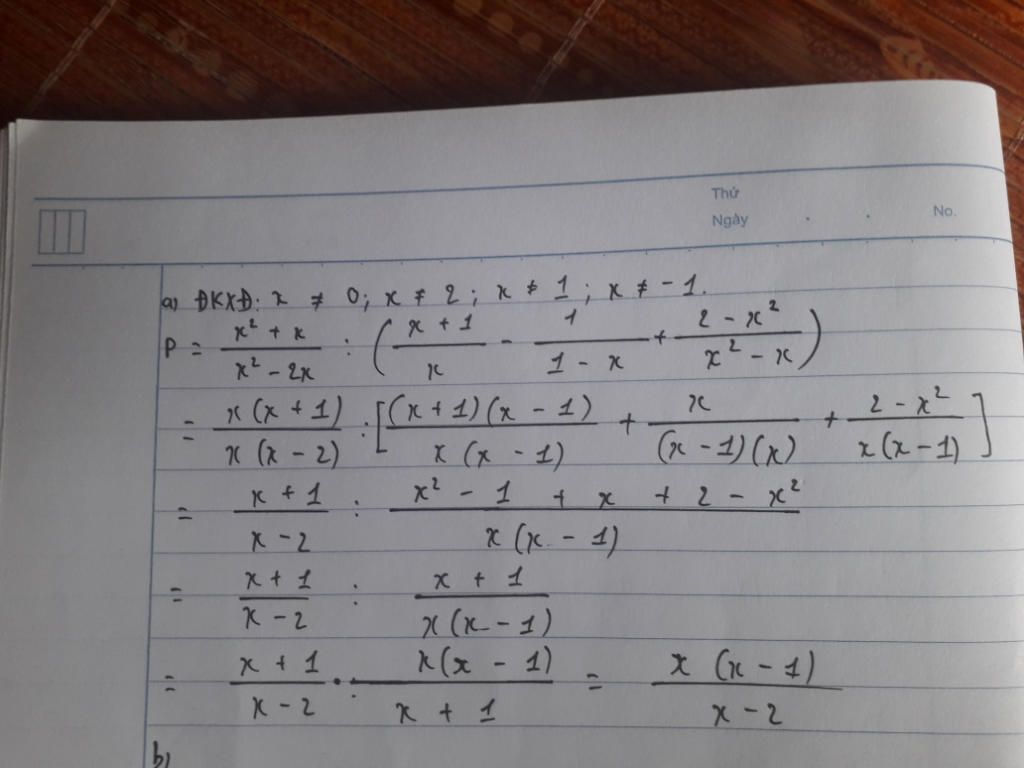 Thứ
Ngày . . No.
a) ĐKXĐ: x ≠ 0; x ≠ 2; x ≠ 1; x ≠ -1.
P = (x² + x)/(x² - 2x) : ((x + 1)/x - 1/(1 - x) + (2 - x²)/(x² - x))
= x(x + 1)/x(x - 2) : [(x + 1)(x - 1)/x(x - 1) + x/(x - 1)(x) + (2 - x²)/x(x - 1)]
= (x + 1)/(x - 2) : (x² - 1 + x + 2 - x²)/x(x - 1)
= (x + 1)/(x - 2) : (x + 1)/x(x - 1)
= (x + 1)/(x - 2) · x(x - 1)/(x + 1) = x(x - 1)/(x - 2)
b)